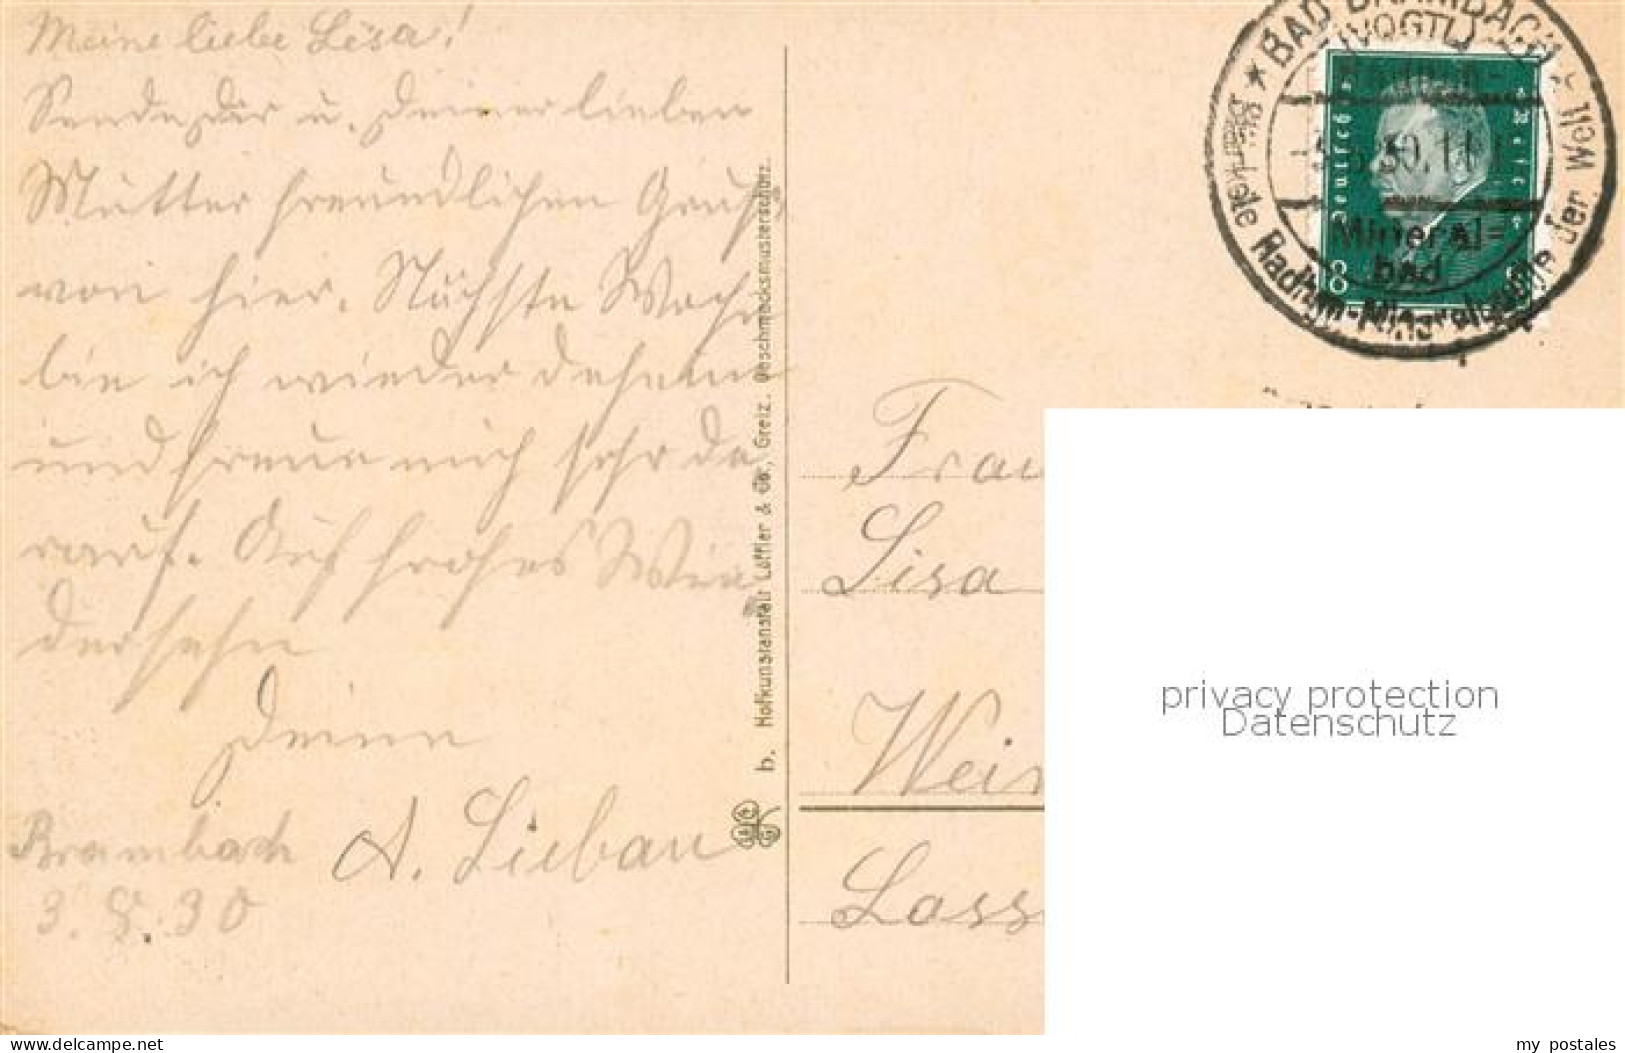 Meine liebe Lisa!
Sende dir u. deiner lieben
Mutter freundlichen Gruß
von hier. Nächste Woche
bin ich wieder daheim
und freue mich sehr da
rauf. Auf frohes Wie
dersehn
Deine
A. Liebau
Brambach
3. 8. 30
b. Hofkunstanstalt Löffler & Co., Greiz. Geschmacksmusterschutz.
BAD BRAMBACH
(VOGTL)
30.11
Mineral=
bad
Radium-Mineralquelle der Welt
Deutsches Reich
8 8
Frau
Lisa
Wei
Lass
privacy protection
Datenschutz
www.delcampe.net
my_postales